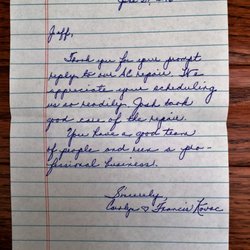 Jeff,
Thank you for your prompt
reply to our AC repair. We
appreciate your scheduling
us so readily. Josh took
good care of the repair.
You have a good team
of people and run a pro-
fessional business.
Sincerely,
Carolyn & Francis Kovac